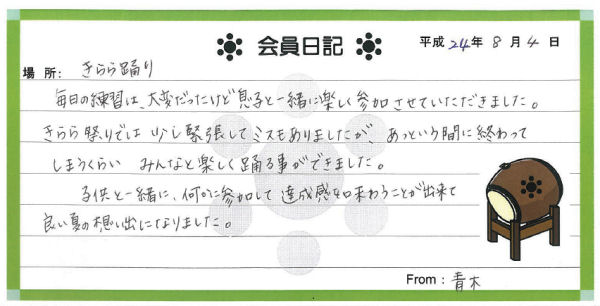 会員日記
平成24年8月4日
場所：きらら踊り
毎日の練習は、大変だったけど息子と一緒に楽しく参加させていただきました。
きらら祭りでは少し緊張してミスもありましたが、あっという間に終わって
しまうくらい みんなと楽しく踊る事ができました。
子供と一緒に、何かに参加して達成感を味わうことが出来て
良い夏の想い出になりました。
From：青木